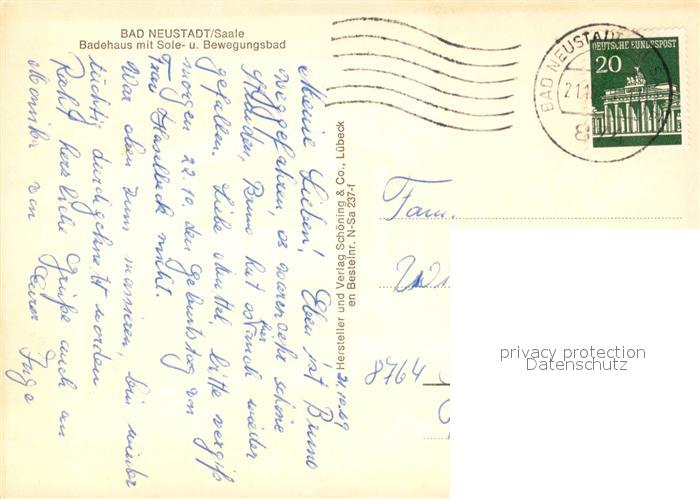 BAD NEUSTADT/Saale
Badehaus mit Sole- u. Bewegungsbad
21.10.69
Meine Lieben! Eben ist Bruno
weggefahren, es waren sehr schöne
Stunden, Bruno hat es auch wieder
hier
gefallen. Liebe Mutter, bitte vergiß
morgen 22.10 den Geburtstag von
Frau Haselbeck nicht.
War eben zum massieren, bin wieder
tüchtig durchgeknetet worden.
Recht herzliche Grüße auch an
Monika von Eurer Inge
Hersteller und Verlag Schöning & Co., Lübeck
en Bestellnr. N-Sa 237-f
BAD NEUSTADT
21.1
DEUTSCHE BUNDESPOST
20
Fam.
8764
privacy protection
Datenschutz